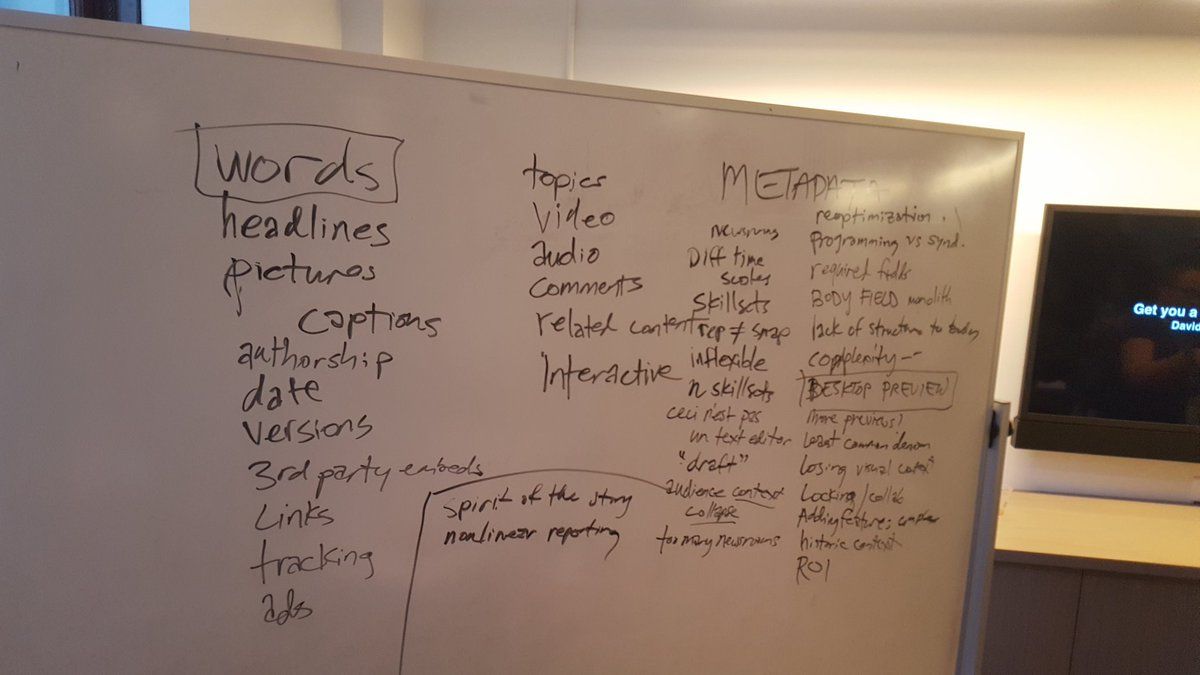 words
headlines
pictures
captions
authorship
date
versions
3rd party embeds
Links
tracking
ads
topics
video
audio
comments
related content
Interactive
spirit of the story
nonlinear reporting
METADATA
Diff time
scales
skillsets
rep ≠ snap
inflexible
n skillsets
ceci n'est pas
un text editor
"draft"
audience context
collapse
too many newsrooms
reoptimization
programming vs synd.
required fields
BODY FIELD monolith
lack of structure to
complexity
DESKTOP PREVIEW
more previews!
Least common denom
Losing visual context
Locking/collab
Adding features
historic context
ROI
Get you a
David